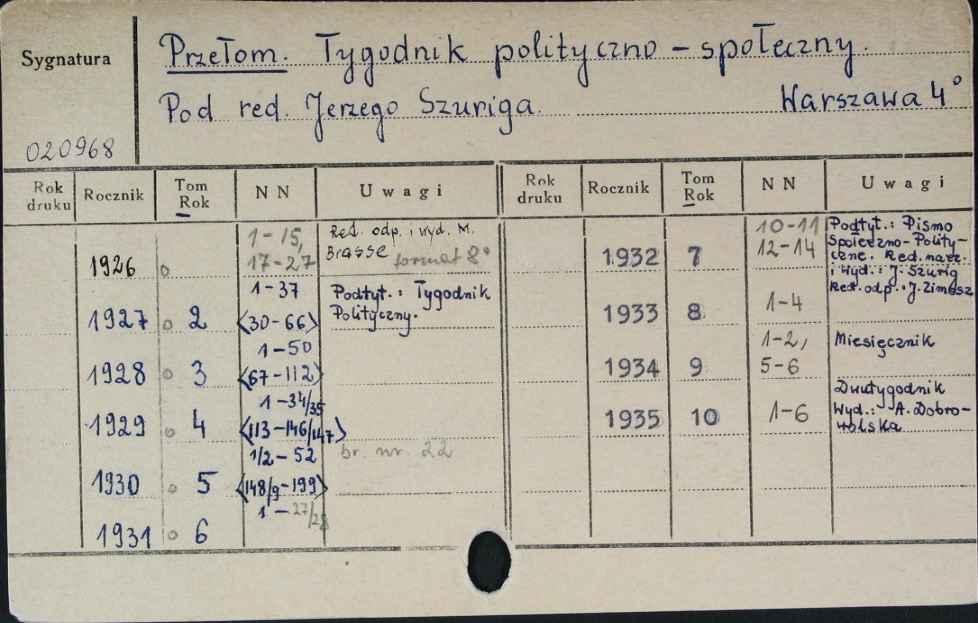 Sygnatura
Przełom. Tygodnik polityczno-społeczny.
Pod red. Jerzego Szuriga. Warszawa 4°
020968
Rok druku Rocznik Tom Rok NN Uwagi Rok druku Rocznik Tom Rok NN Uwagi
1926 o 1-15, 17-27 Red. odp. i wyd. M. Brasse format 8°
1927 o 2 1-37 <30-66> Podtyt.: Tygodnik Polityczny.
1928 o 3 1-50 <67-112>
1929 o 4 1-34/35 <113-146/147>
1930 o 5 1/2-52 <148/9-199> br. nr. 22
1931 o 6 1-27/28
1932 7 10-11 12-14 Podtyt.: Pismo
Społeczno-Polity-
czne. Red. nacz.
i wyd.: J. Szurig
Red. odp.: J. Zimosz
1933 8 1-4
1934 9 1-2, 5-6 Miesięcznik
1935 10 1-6 Dwutygodnik
Wyd.: A. Dobro-
wolska